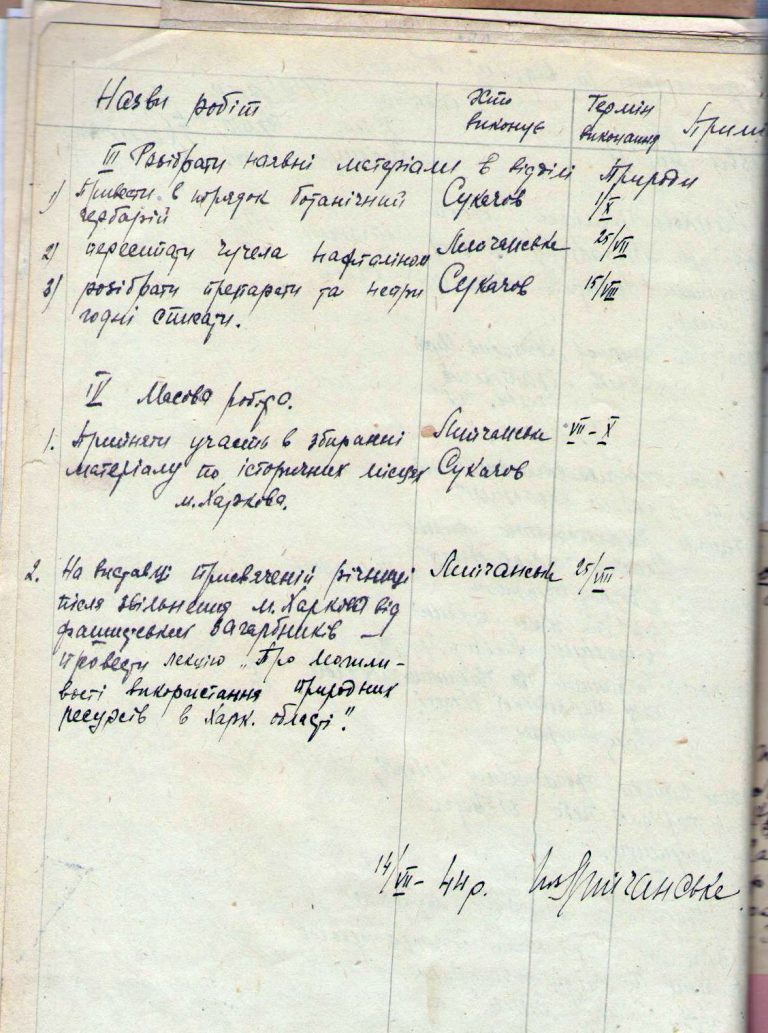 Назви робіт Хто виконує Термін виконання Примі
III Розібрати наявні матеріали в відділі Природи
1) Привести в порядок ботанічний Сукачов 1/X
гербарій
2) пересипати чучела нафталіном Липчанське 25/VII
3) розібрати препарати та непри Сукачов 15/VIII
годні списати.
IV Масова робота.
1. Прийняти участь в збиранні Липчанське VII – X
матеріалу по історичних місцях Сукачов
м. Харкова.
2. На виставці присвяченій річниці Липчанське 25/VIII
після звільнення м. Харкова від
фашиських загарбників —
провести лекцію „Про можли-
вості використання природних
ресурсів в Харк. області".
14/VII – 44 р. Липчанське